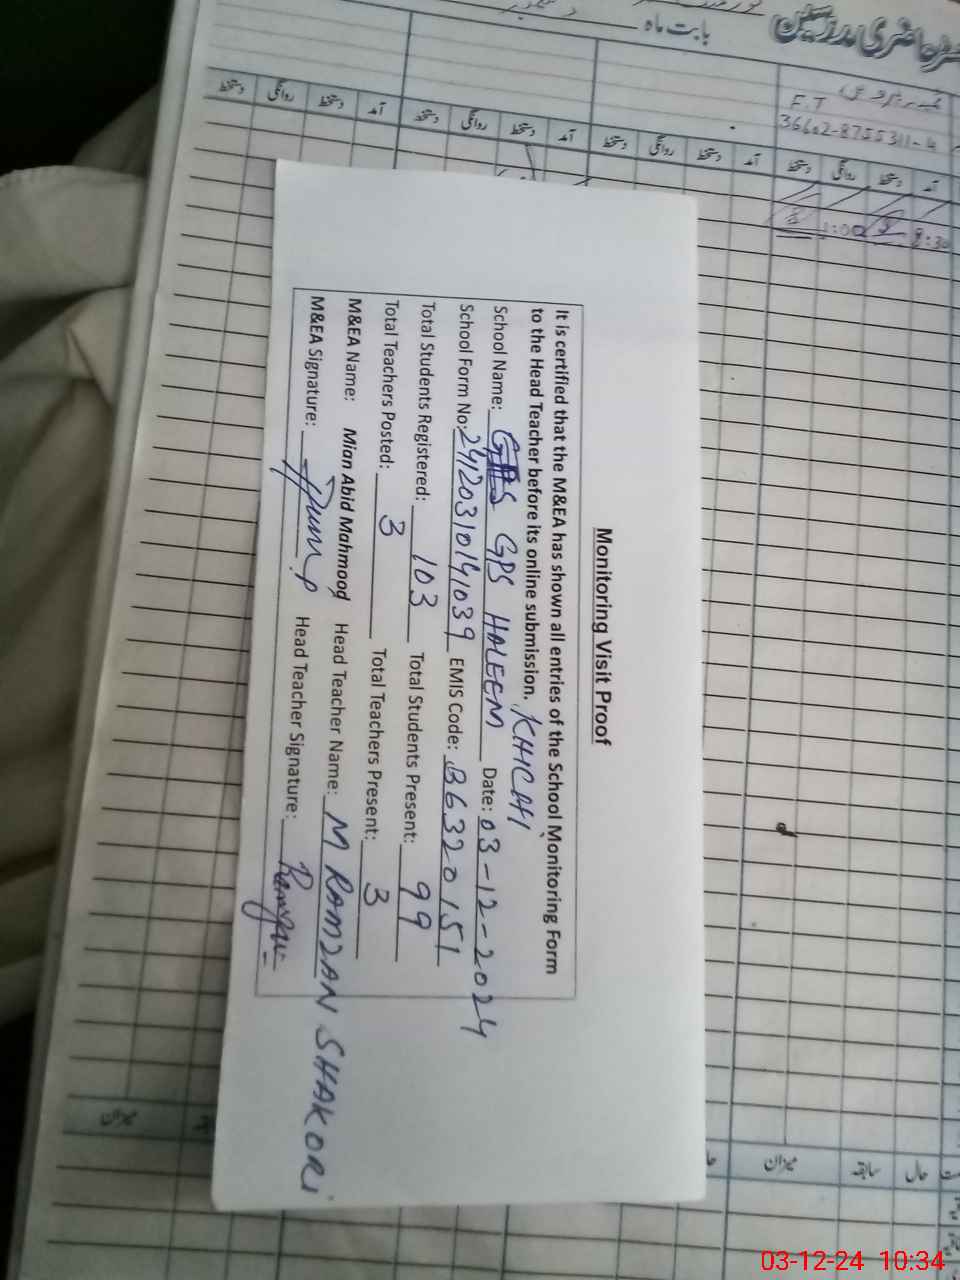 Monitoring Visit Proof
It is certified that the M&EA has shown all entries of the School Monitoring Form
to the Head Teacher before its online submission.
School Name: GPS HALEEM KHICHI Date: 03-12-2024
School Form No: 24120310141039 EMIS Code: 36320151
Total Students Registered: 103 Total Students Present: 99
Total Teachers Posted: 3 Total Teachers Present: 3
M&EA Name: Mian Abid Mahmood Head Teacher Name: M RAMZAN SHAKORI
M&EA Signature: Head Teacher Signature:
حاضری مدرسین
بابت ماہ
F.T
36602-8755311-4
آمد دستخط روانگی دستخط آمد دستخط روانگی دستخط آمد دستخط روانگی دستخط آمد دستخط روانگی دستخط
8:30 1:00
حال سابقہ میزان
میزان
03-12-24 10:34